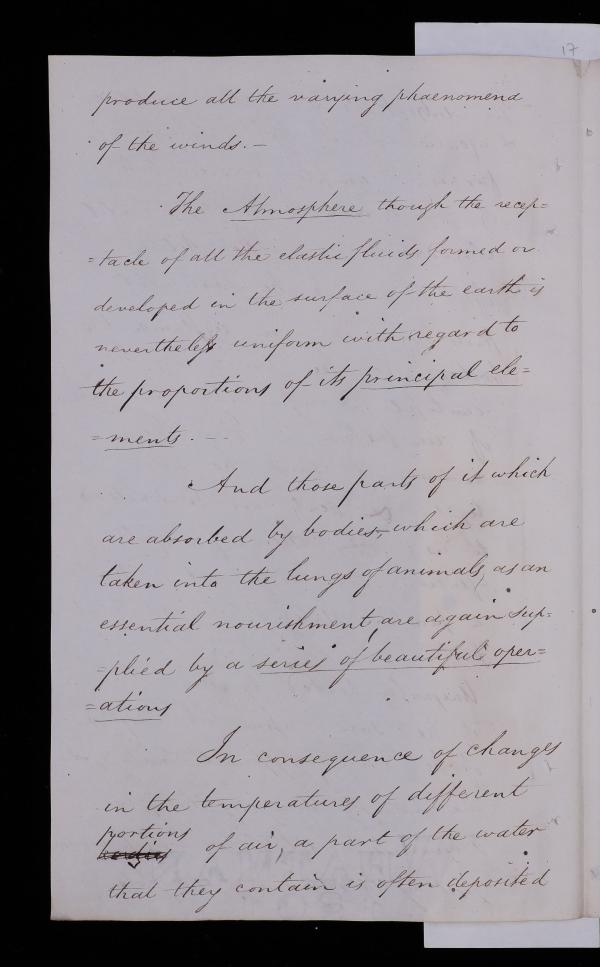 17
produce all the varying phaenomena
of the winds. —
The Atmosphere though the recep=
=tacle of all the elastic fluids formed or
developed in the surface of the earth is
nevertheless uniform with regard to
the proportions of its principal ele=
=ments. —
And those parts of it which
are absorbed by bodies, which are
taken into the lungs of animals, as an
essential nourishment, are again sup=
=plied by a series of beautiful oper=
=ations
In consequence of changes
in the temperatures of different
portions
of air, a part of the water
that they contain is often deposited